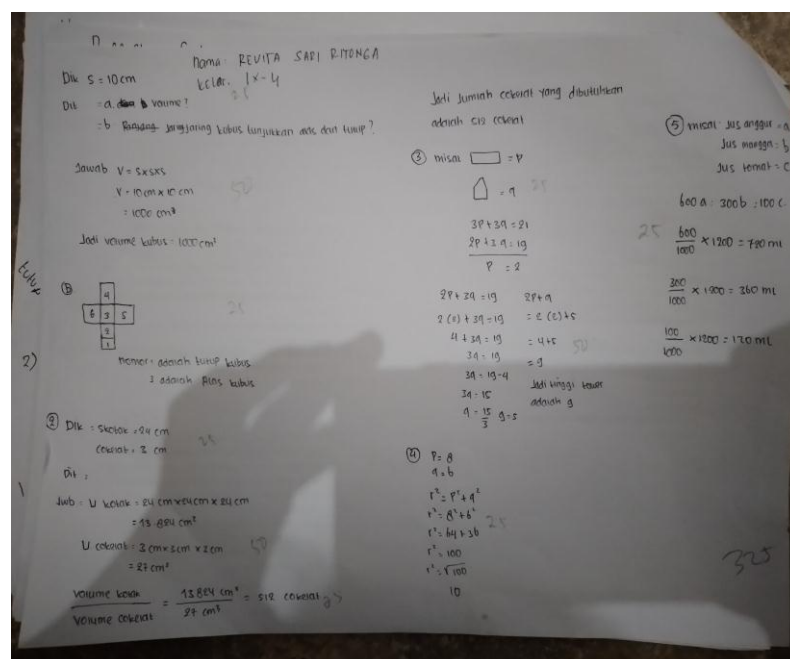 Nama: REVITA SARI RITONGA
Kelas: IX-4
Dik S = 10 cm
25
Dit = a. volume?
= b jaring jaring kubus tunjukkan alas dan tutup?
Jawab V = S x S x S
V = 10 cm x 10 cm
= 1000 cm³
50
Jadi volume kubus = 1000 cm³
tutup
B
4
6 3 5
2
1
25
2)
nomor 1 adalah tutup kubus
3 adalah Alas kubus
② Dik = S kotak = 24 cm
Cokelat = 3 cm
25
Dit :
Jwb = V kotak = 24 cm x 24 cm x 24 cm
= 13.824 cm³
V cokelat = 3 cm x 3 cm x 3 cm
= 27 cm³
50
volume kotak / volume cokelat = 13824 cm³ / 27 cm³ = 512 cokelat
25
Jadi Jumlah cokelat yang dibutuhkan
adalah 512 cokelat
③ misal = P
= q
25
3P + 3q = 21
2P + 3q = 19
P = 2
2P + 3q = 19
2(2) + 3q = 19
4 + 3q = 19
3q = 19
3q = 19 - 4
3q = 15
q = 15/3 q = 5
2P + q
= 2(2) + 5
= 4 + 5
= 9
50
Jadi tinggi tower
adalah 9
④ P = 8
q = 6
r² = P² + q²
r² = 8² + 6²
25
r² = 64 + 36
r² = 100
r² = √100
10
⑤ misal = Jus anggur = a
Jus mangga = b
Jus tomat = c
600 a : 300 b : 100 c
25
600/1000 x 1200 = 720 ml
300/1000 x 1200 = 360 ml
100/1000 x 1200 = 120 ml
325